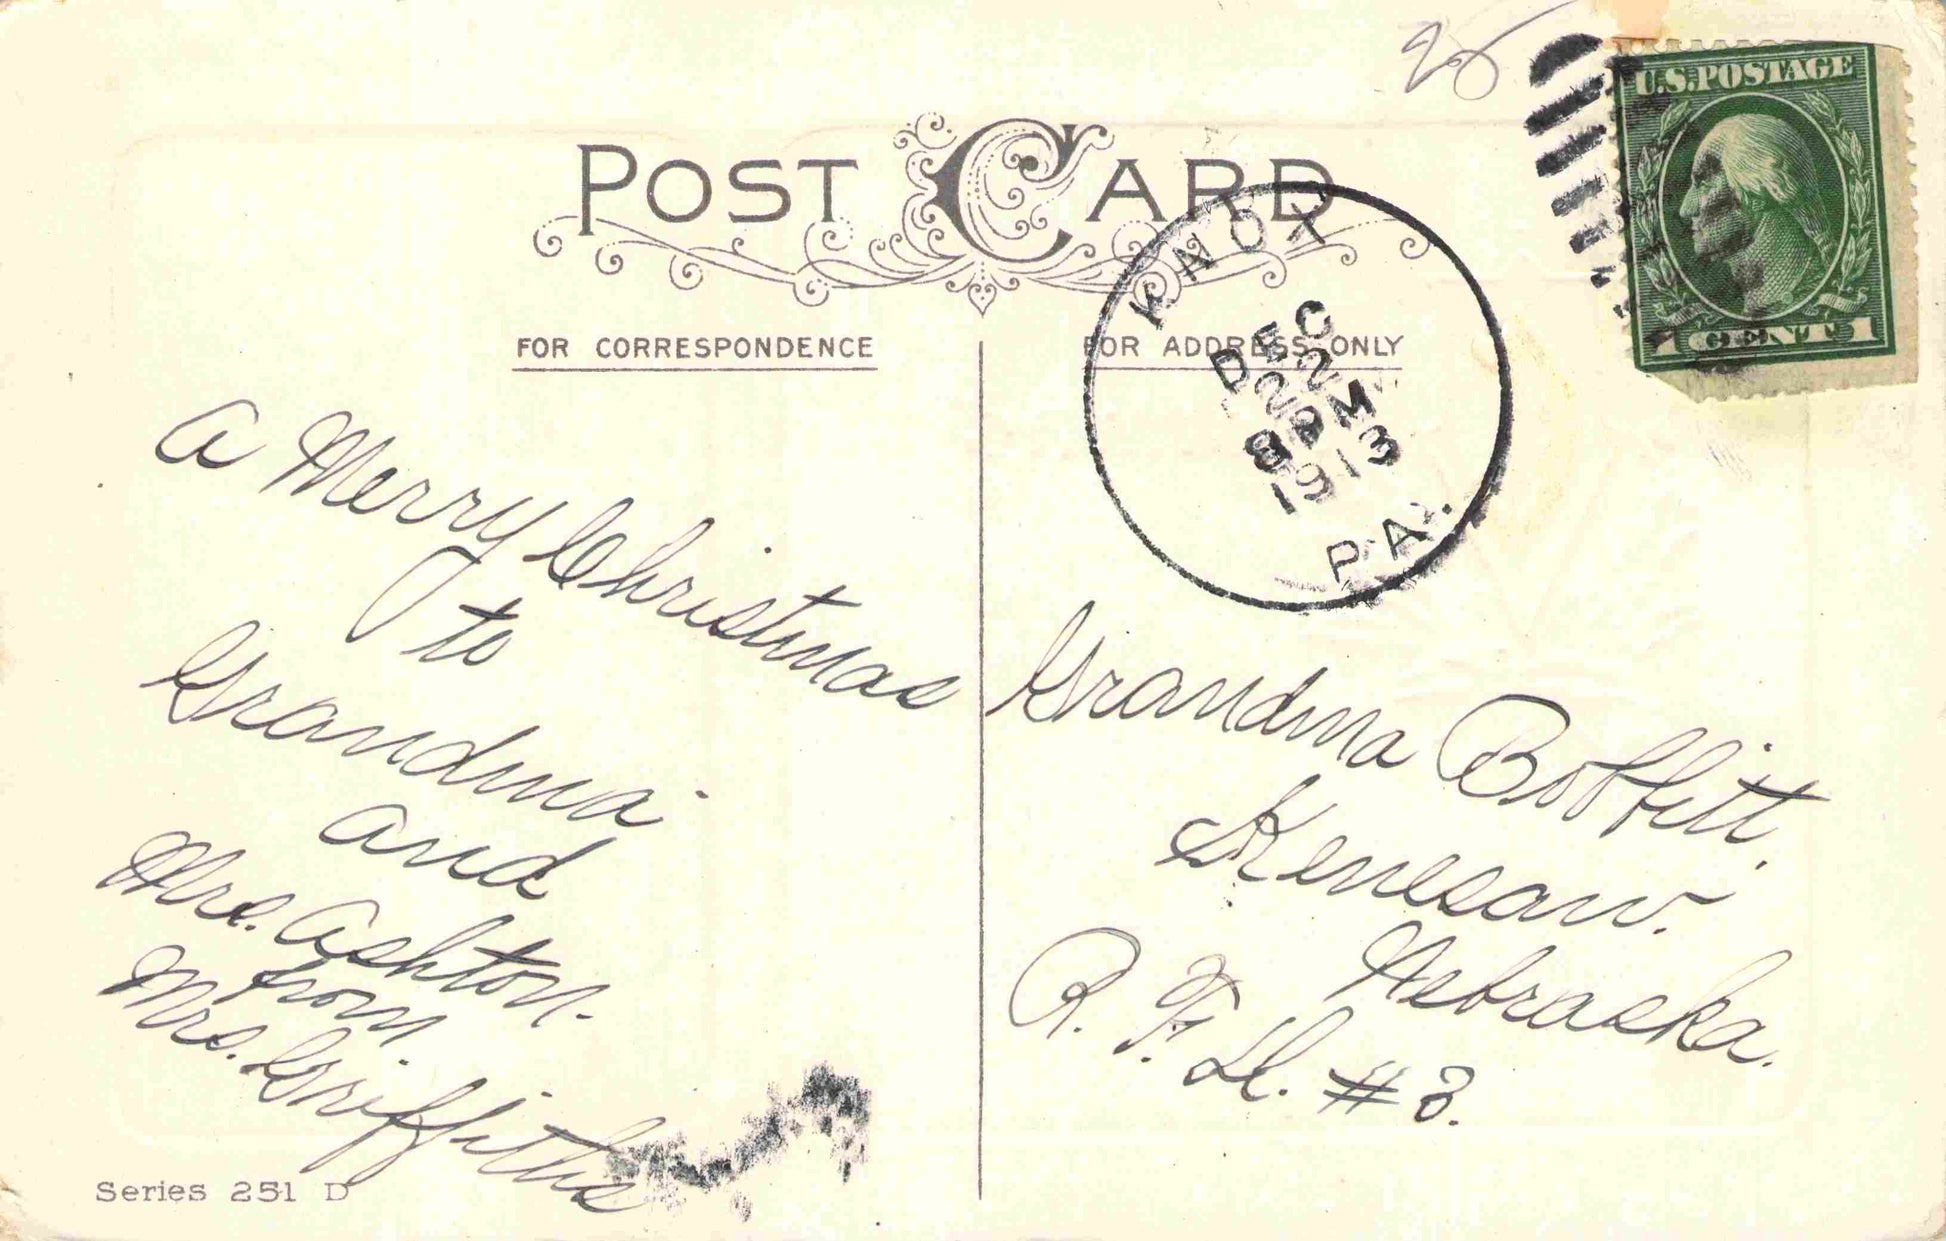 96
POST CARD
U.S. POSTAGE
1 CENT 1
KNOX
DEC
22
8 PM
1913
PA.
FOR CORRESPONDENCE
FOR ADDRESS ONLY
A Merry Christmas
to
Grandma
and
Mrs. Ashton.
from
Mrs. Griffiths
Grandma Boffitt,
Kenesaw.
Nebraska.
R. F. D. #3.
Series 251 D